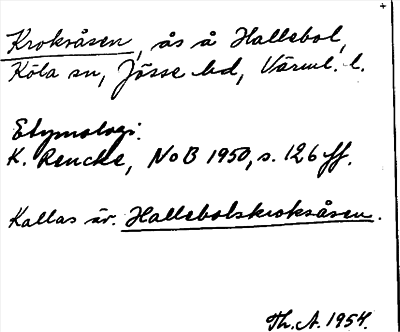 Kroksåsen, ås å Hallebol,
Köla sn, Jösse hd, Värml. l.
Etymologi:
K. Rencke, NoB 1950, s. 126 ff.
Kallas äv. Hallebolskroksåsen.
Th. A. 1954.